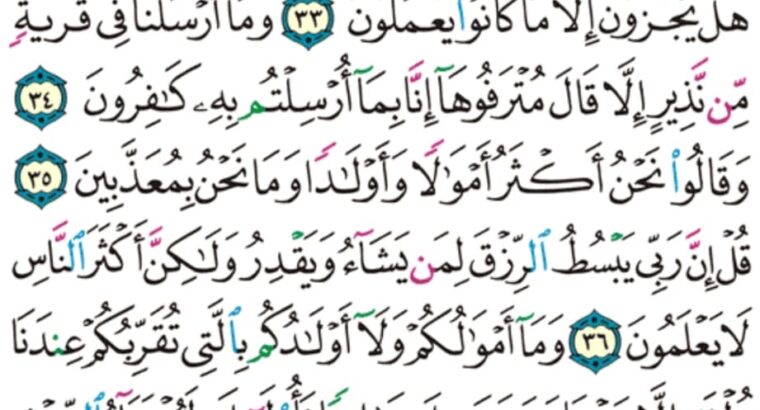 هَلْ يُجْزَوْنَ إِلَّا مَا كَانُوا۟ يَعْمَلُونَ ٣٣ وَمَآ أَرْسَلْنَا فِى قَرْيَةٍ
مِّن نَّذِيرٍ إِلَّا قَالَ مُتْرَفُوهَآ إِنَّا بِمَآ أُرْسِلْتُم بِهِۦ كَـٰفِرُونَ ٣٤
وَقَالُوا۟ نَحْنُ أَكْثَرُ أَمْوَٰلًا وَأَوْلَـٰدًا وَمَا نَحْنُ بِمُعَذَّبِينَ ٣٥
قُلْ إِنَّ رَبِّى يَبْسُطُ ٱلرِّزْقَ لِمَن يَشَآءُ وَيَقْدِرُ وَلَـٰكِنَّ أَكْثَرَ ٱلنَّاسِ
لَا يَعْلَمُونَ ٣٦ وَمَآ أَمْوَٰلُكُمْ وَلَآ أَوْلَـٰدُكُم بِٱلَّتِى تُقَرِّبُكُمْ عِندَنَا